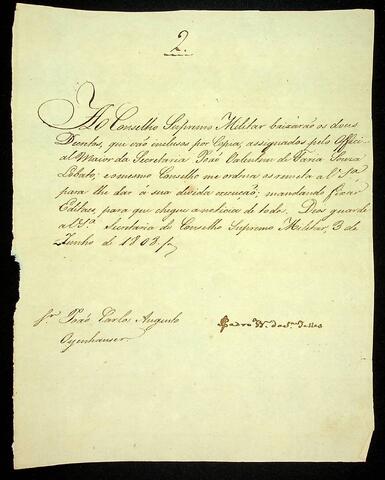 2.
Ao Conselho Supremo Militar baixarão os dous
Decretos, que vão inclusos por Copia, assignados pelo Offici-
al Maior da Secretaria João Valentim de Faria Souza
Lobato; e o mesmo Conselho me ordena os remeta a V. S.ª
para lhe dar á sua devida execução; mandando fixar
Editaes, para que chegue a noticia de todos. Deos guarde
a V. S.ª Secretaria do Conselho Supremo Militar, 3 de
Junho de 1808.
Sr. João Carlos Augusto
Oyenhauser.